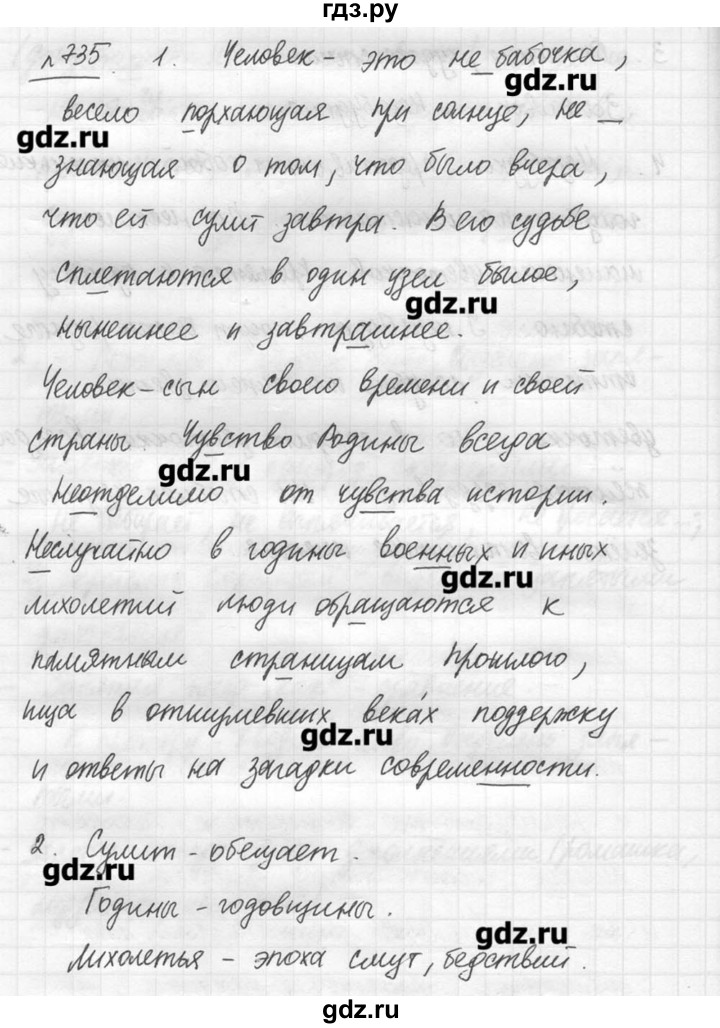 гдз.ру
№735. 1. Человек - это не бабочка,
gdz.ru
весело порхающая при солнце, не
gdz.ru
знающая о том, что было вчера,
что ей сулит завтра. В его судьбе
сплетаются в один узел былое,
gdz.ru
нынешнее и завтрашнее.
Человек - сын своего времени и своей
страны. Чувство Родины всегда
gdz.ru
неотделимо от чувства истории.
Неслучайно в годины военных и иных
gdz.ru
лихолетий люди обращаются к
памятным страницам прошлого,
ища в отшумевших века́х поддержку
gdz.ru
и ответы на загадки современности.
2. Сулит - обещает.
gdz.ru
Годины - годовщины.
gdz.ru
Лихолетья - эпоха смут, бедствий.
gdz.ru